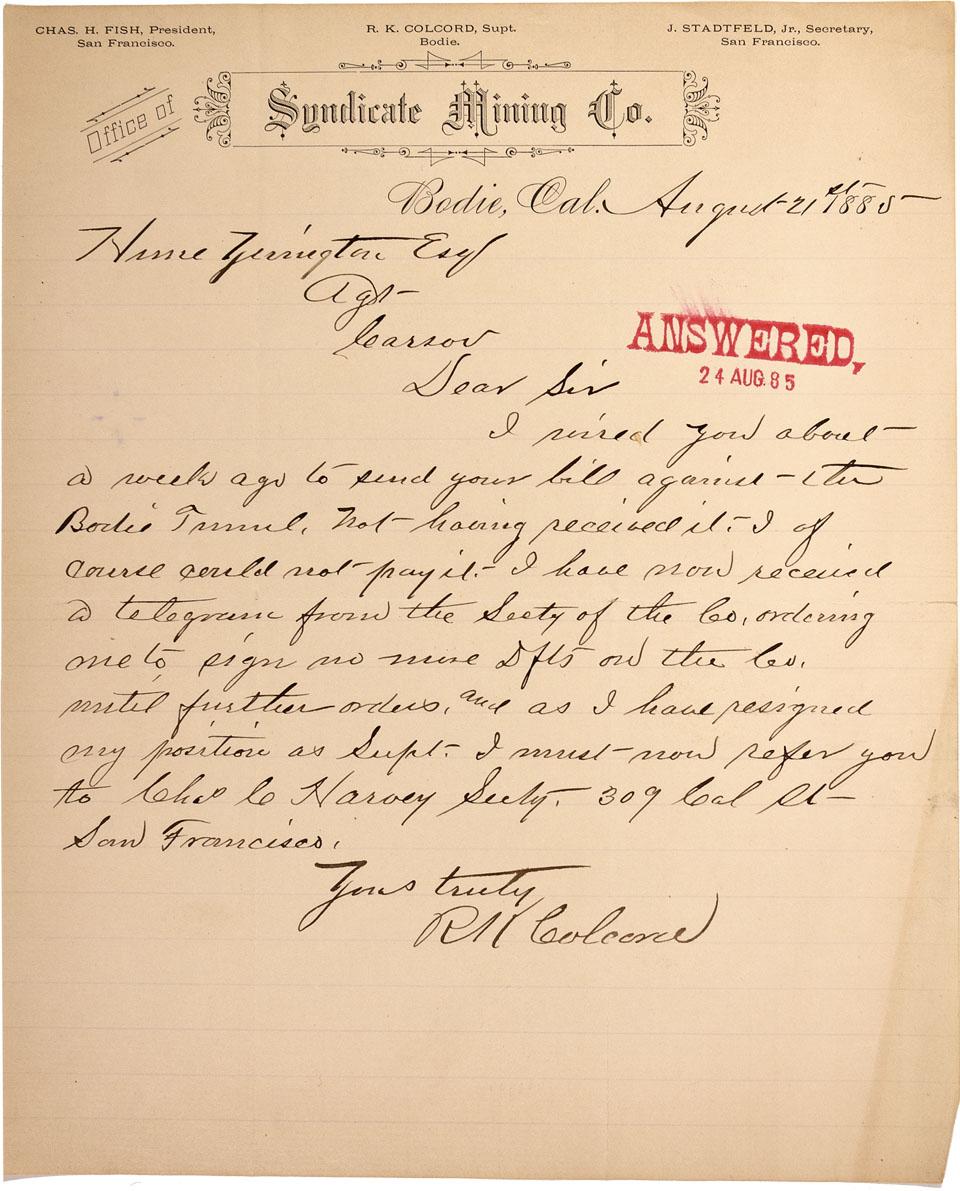 CHAS. H. FISH, President,
San Francisco.
R. K. COLCORD, Supt.
Bodie.
J. STADTFELD, Jr., Secretary,
San Francisco.
Office of
Syndicate Mining Co.
Bodie, Cal. August 21st 1885
Hume Yerington Esq
Agt
Carson
ANSWERED,
24 AUG. 85
Dear Sir
I wired you about
a week ago to send your bill against the
Bodie Tunnel. Not having received it I of
course could not pay it. I have now received
a telegram from the Secty of the Co, ordering
me to sign no more Dfts on the Co.
until further orders, and as I have resigned
my position as Supt. I must now refer you
to Chas C Harvey Secty. 309 Cal St
San Francisco.
Yours truly
RK Colcord